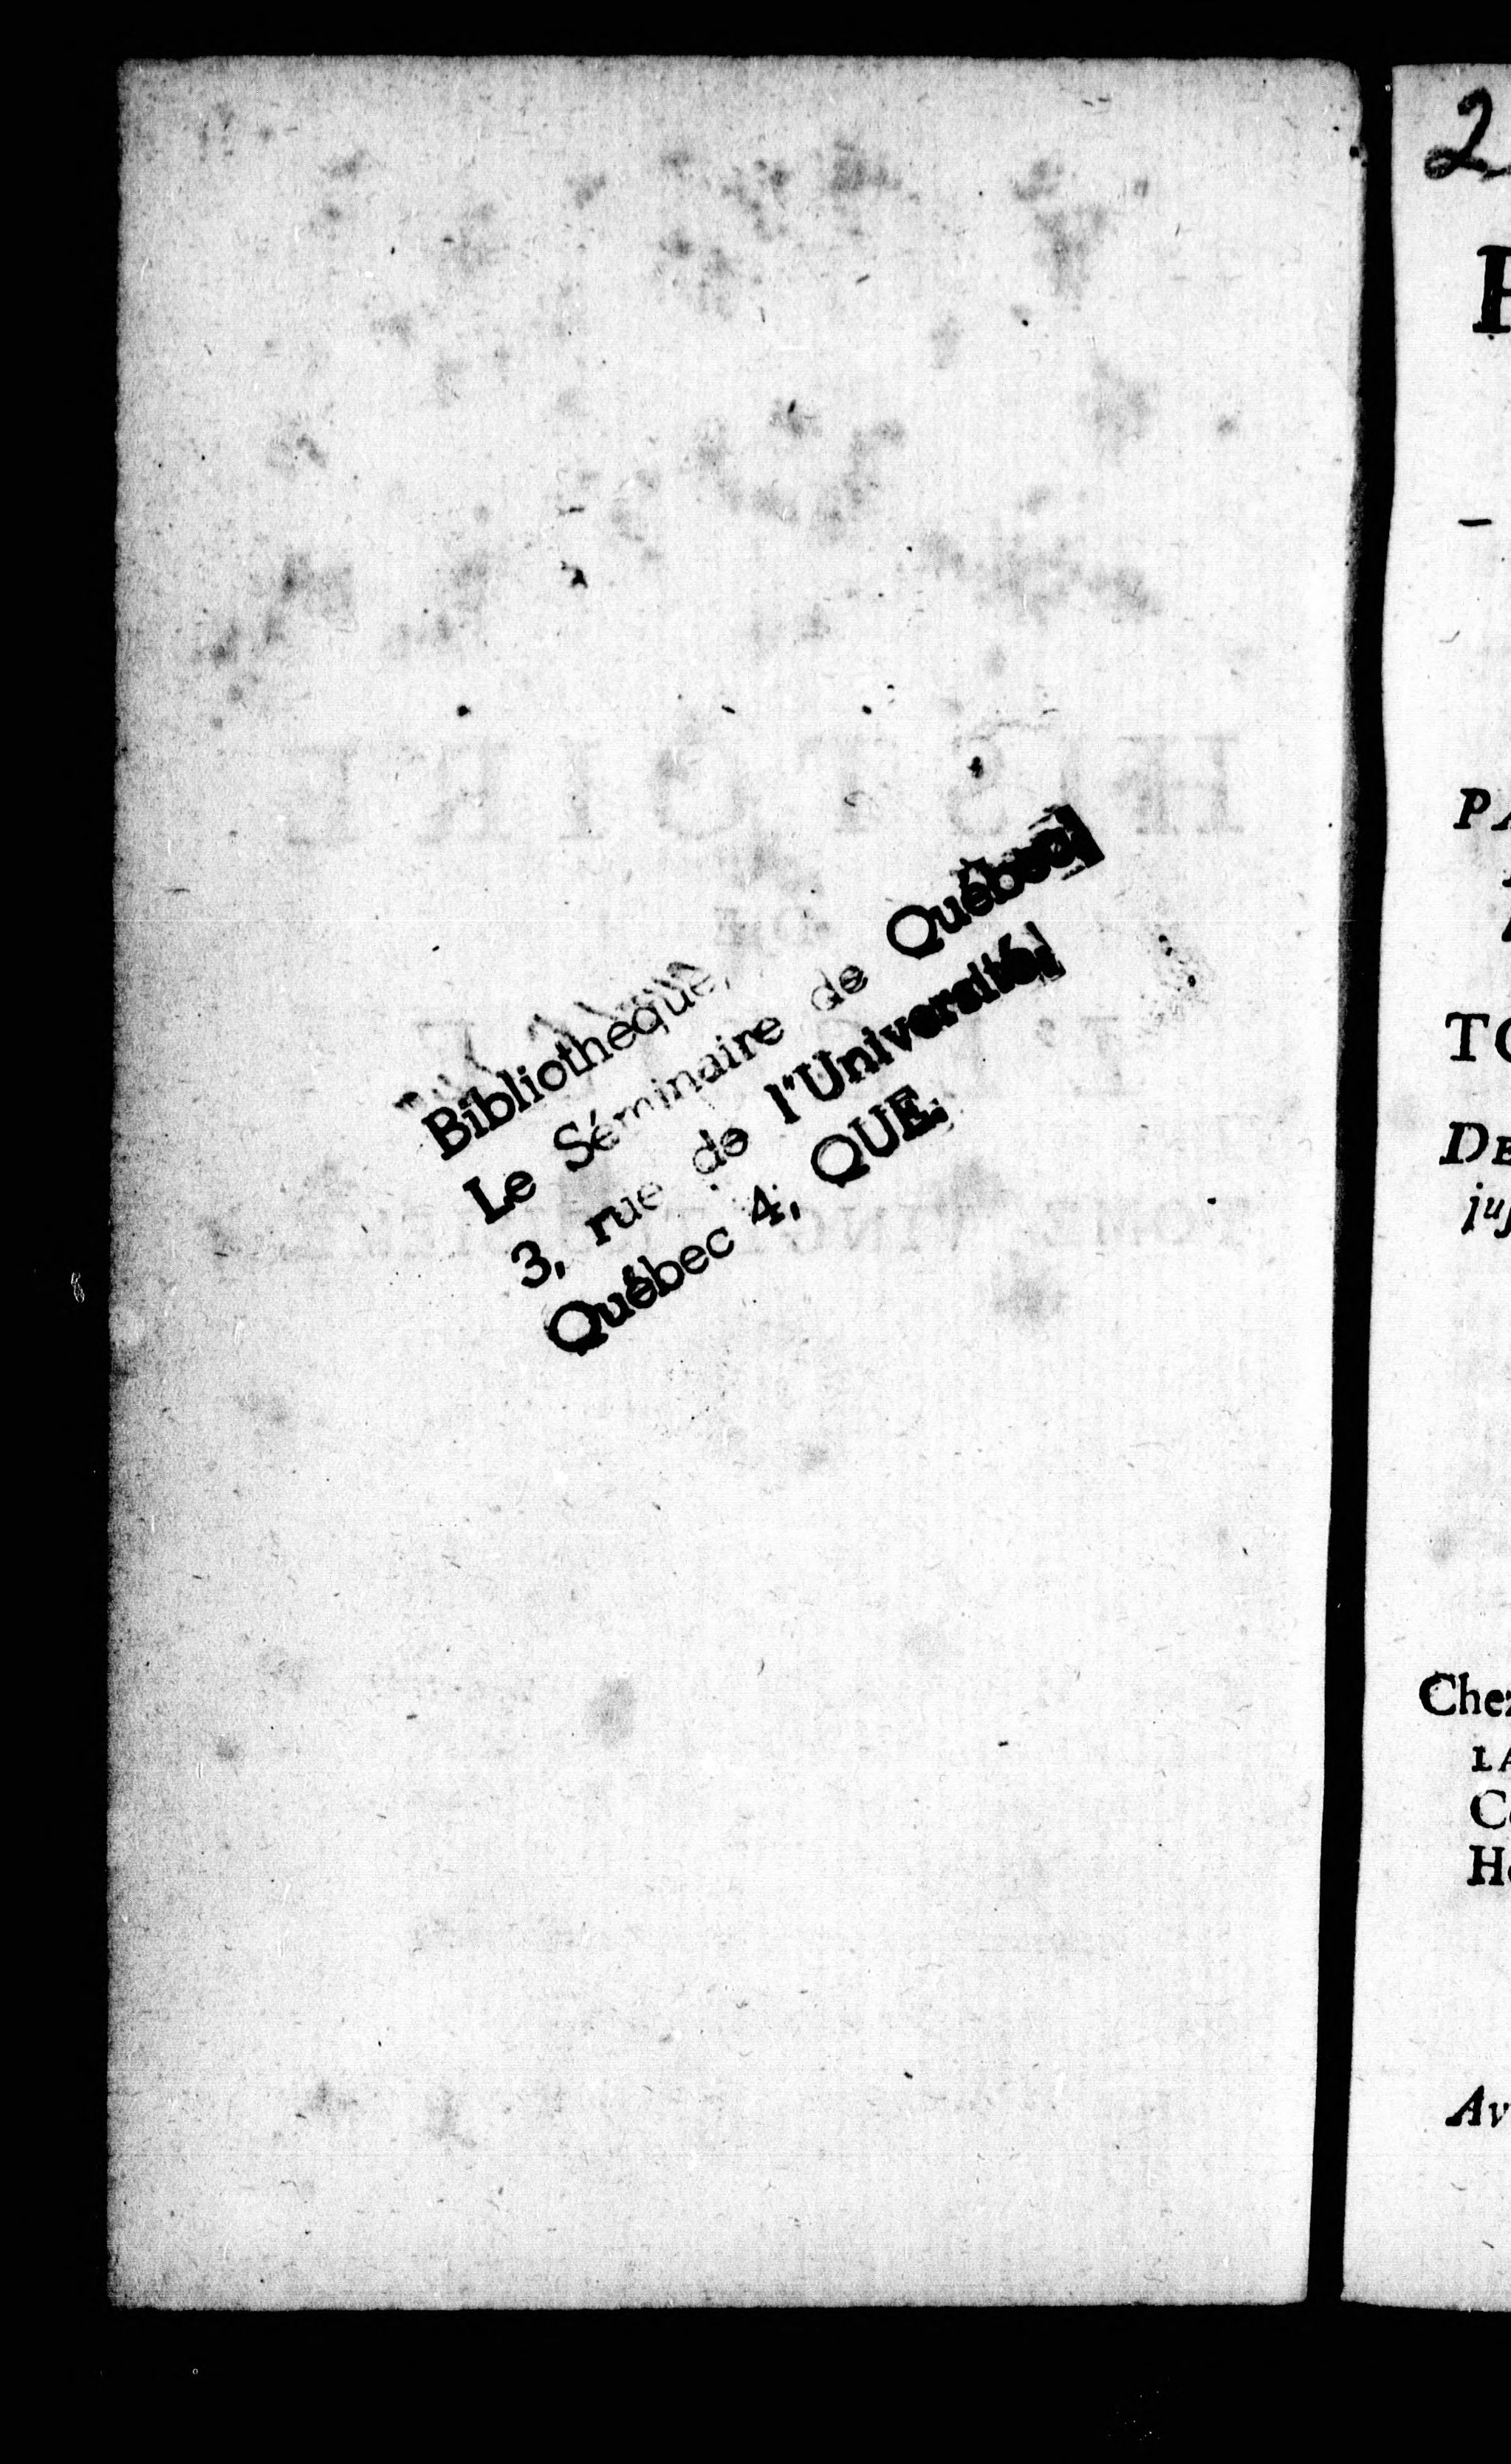 Bibliothèque,
Le Séminaire de Québec
3, rue de l'Université,
Québec 4, QUE.
HISTOIRE
DE
2
PA
TO
DE
juſ
Chez
LA
Co
He
Av